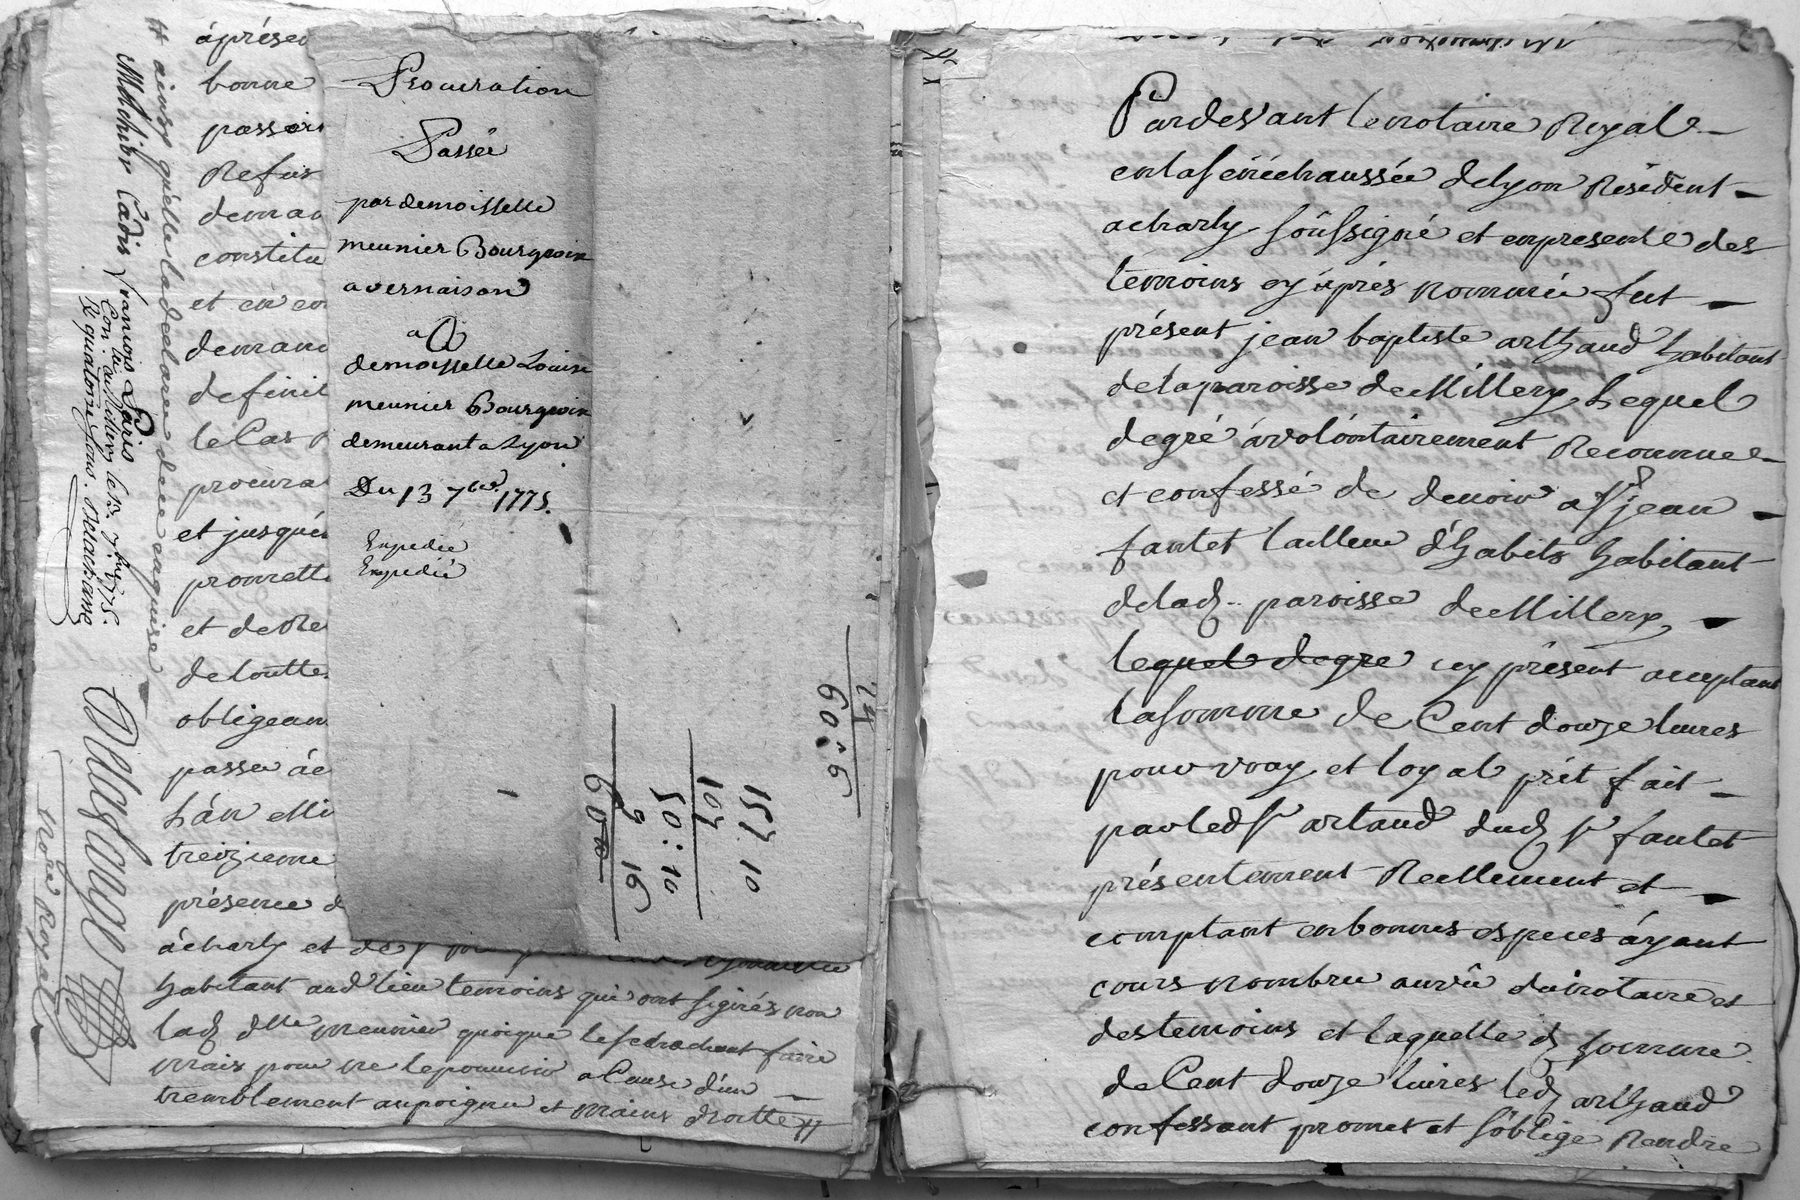 áprésen
bonne
passer
Refus
deman
constitu
et en
demand
definit
le Cas
procura
et jusqué
promett
et de Re
de toutte
obligean
passé
L'án Mil
treizieme
présence d
ácharly et de
habitant aud lieu temoins qui ont signés non
lad dlle meunier quoique le sachant faire
mais pour ne le pouvoir a Cause d'un
tremblement au poignet et mains droitte #
# ainsy quélle la declaré de ce enquise
Melchior Cadis François Paris
Con.lé au millery le 13. 7bre 1775.
R quatorze sous. Delachanse
Deleschanpt
no.re Royal
Procuration
Passée
par demoisselle
meunier Bourgeoise
a vernaison
a
demoisselle Louise
meunier Bourgeoise
demeurant a Lyon
Du 13 7bre. 1775.
Expediée
Expedié
60:6
157 10
107
50:10
9 16
60
Pardevant le notaire Royal
en la sénéchaussée de lyon Résident
a charly soussigné et en presence des
temoins cy áprés nommés fut
présent jean baptiste arthaud habitant
de la paroisse de Millery, Lequel
de gré á volontairement Reconnue
et confessé de devoir a Sr jean
fantet tailleur d'habits habitant
de lad. paroisse de Millery,
lequel de gre cy présent acceptant
la somme de Cent douze livres
pour vray et loyal prét fait
par led Sr artaud dud Sr fantet
présentement Réellement et
comptant en bonnes especes áyant
cours nombrée au vû du notaire et
des temoins et laquelle d somme
de Cent douze livres led arthaud
confessant promet et s'oblige Rendre